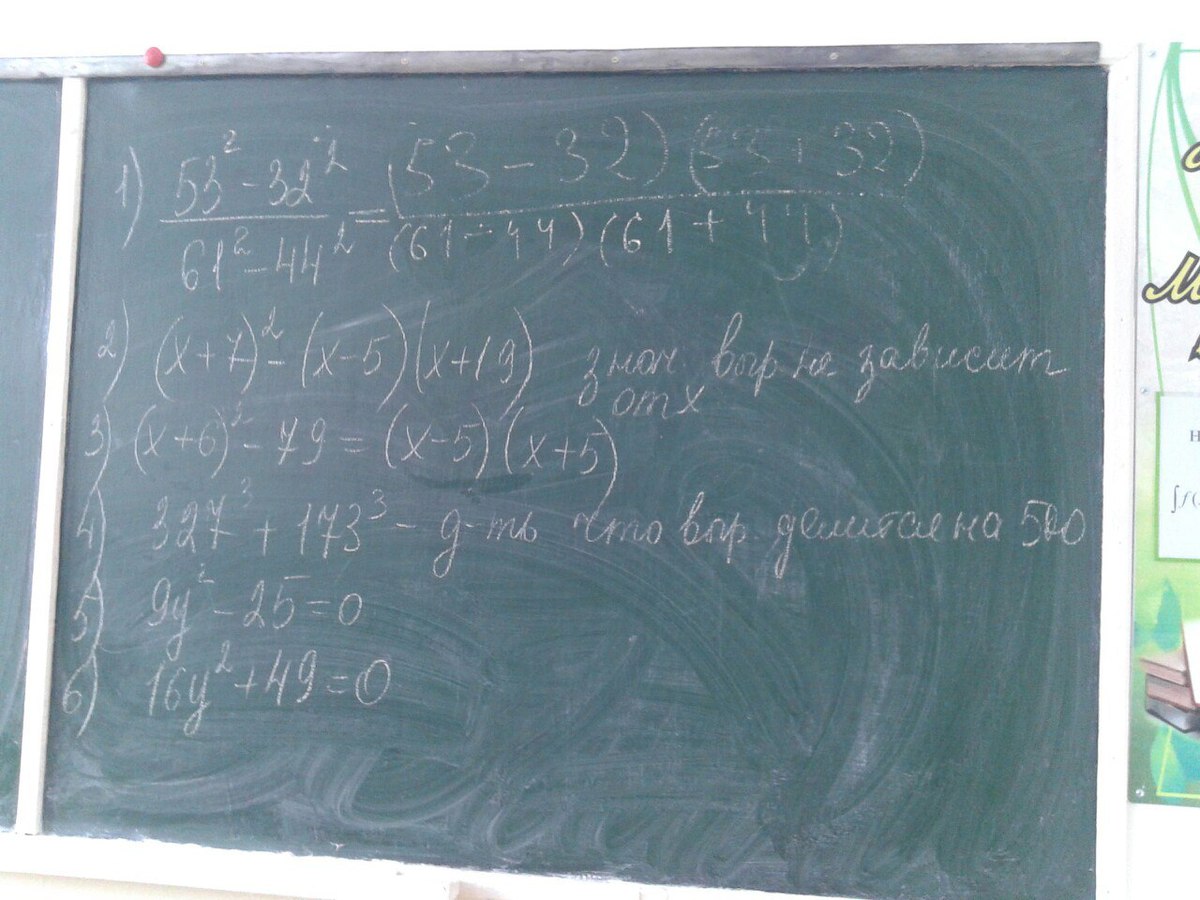 1) (53² - 32²)/(61² - 44²) = ((53 - 32)(53 + 32))/((61 - 44)(61 + 44))
2) (x+7)² - (x-5)(x+19) знач. выр не зависит
от x
3) (x+6)² - 79 = (x-5)(x+5)
4) 327³ + 173³ - д-ть что выр. делится на 500
5) 9y² - 25 = 0
6) 16y² + 49 = 0
М
Н